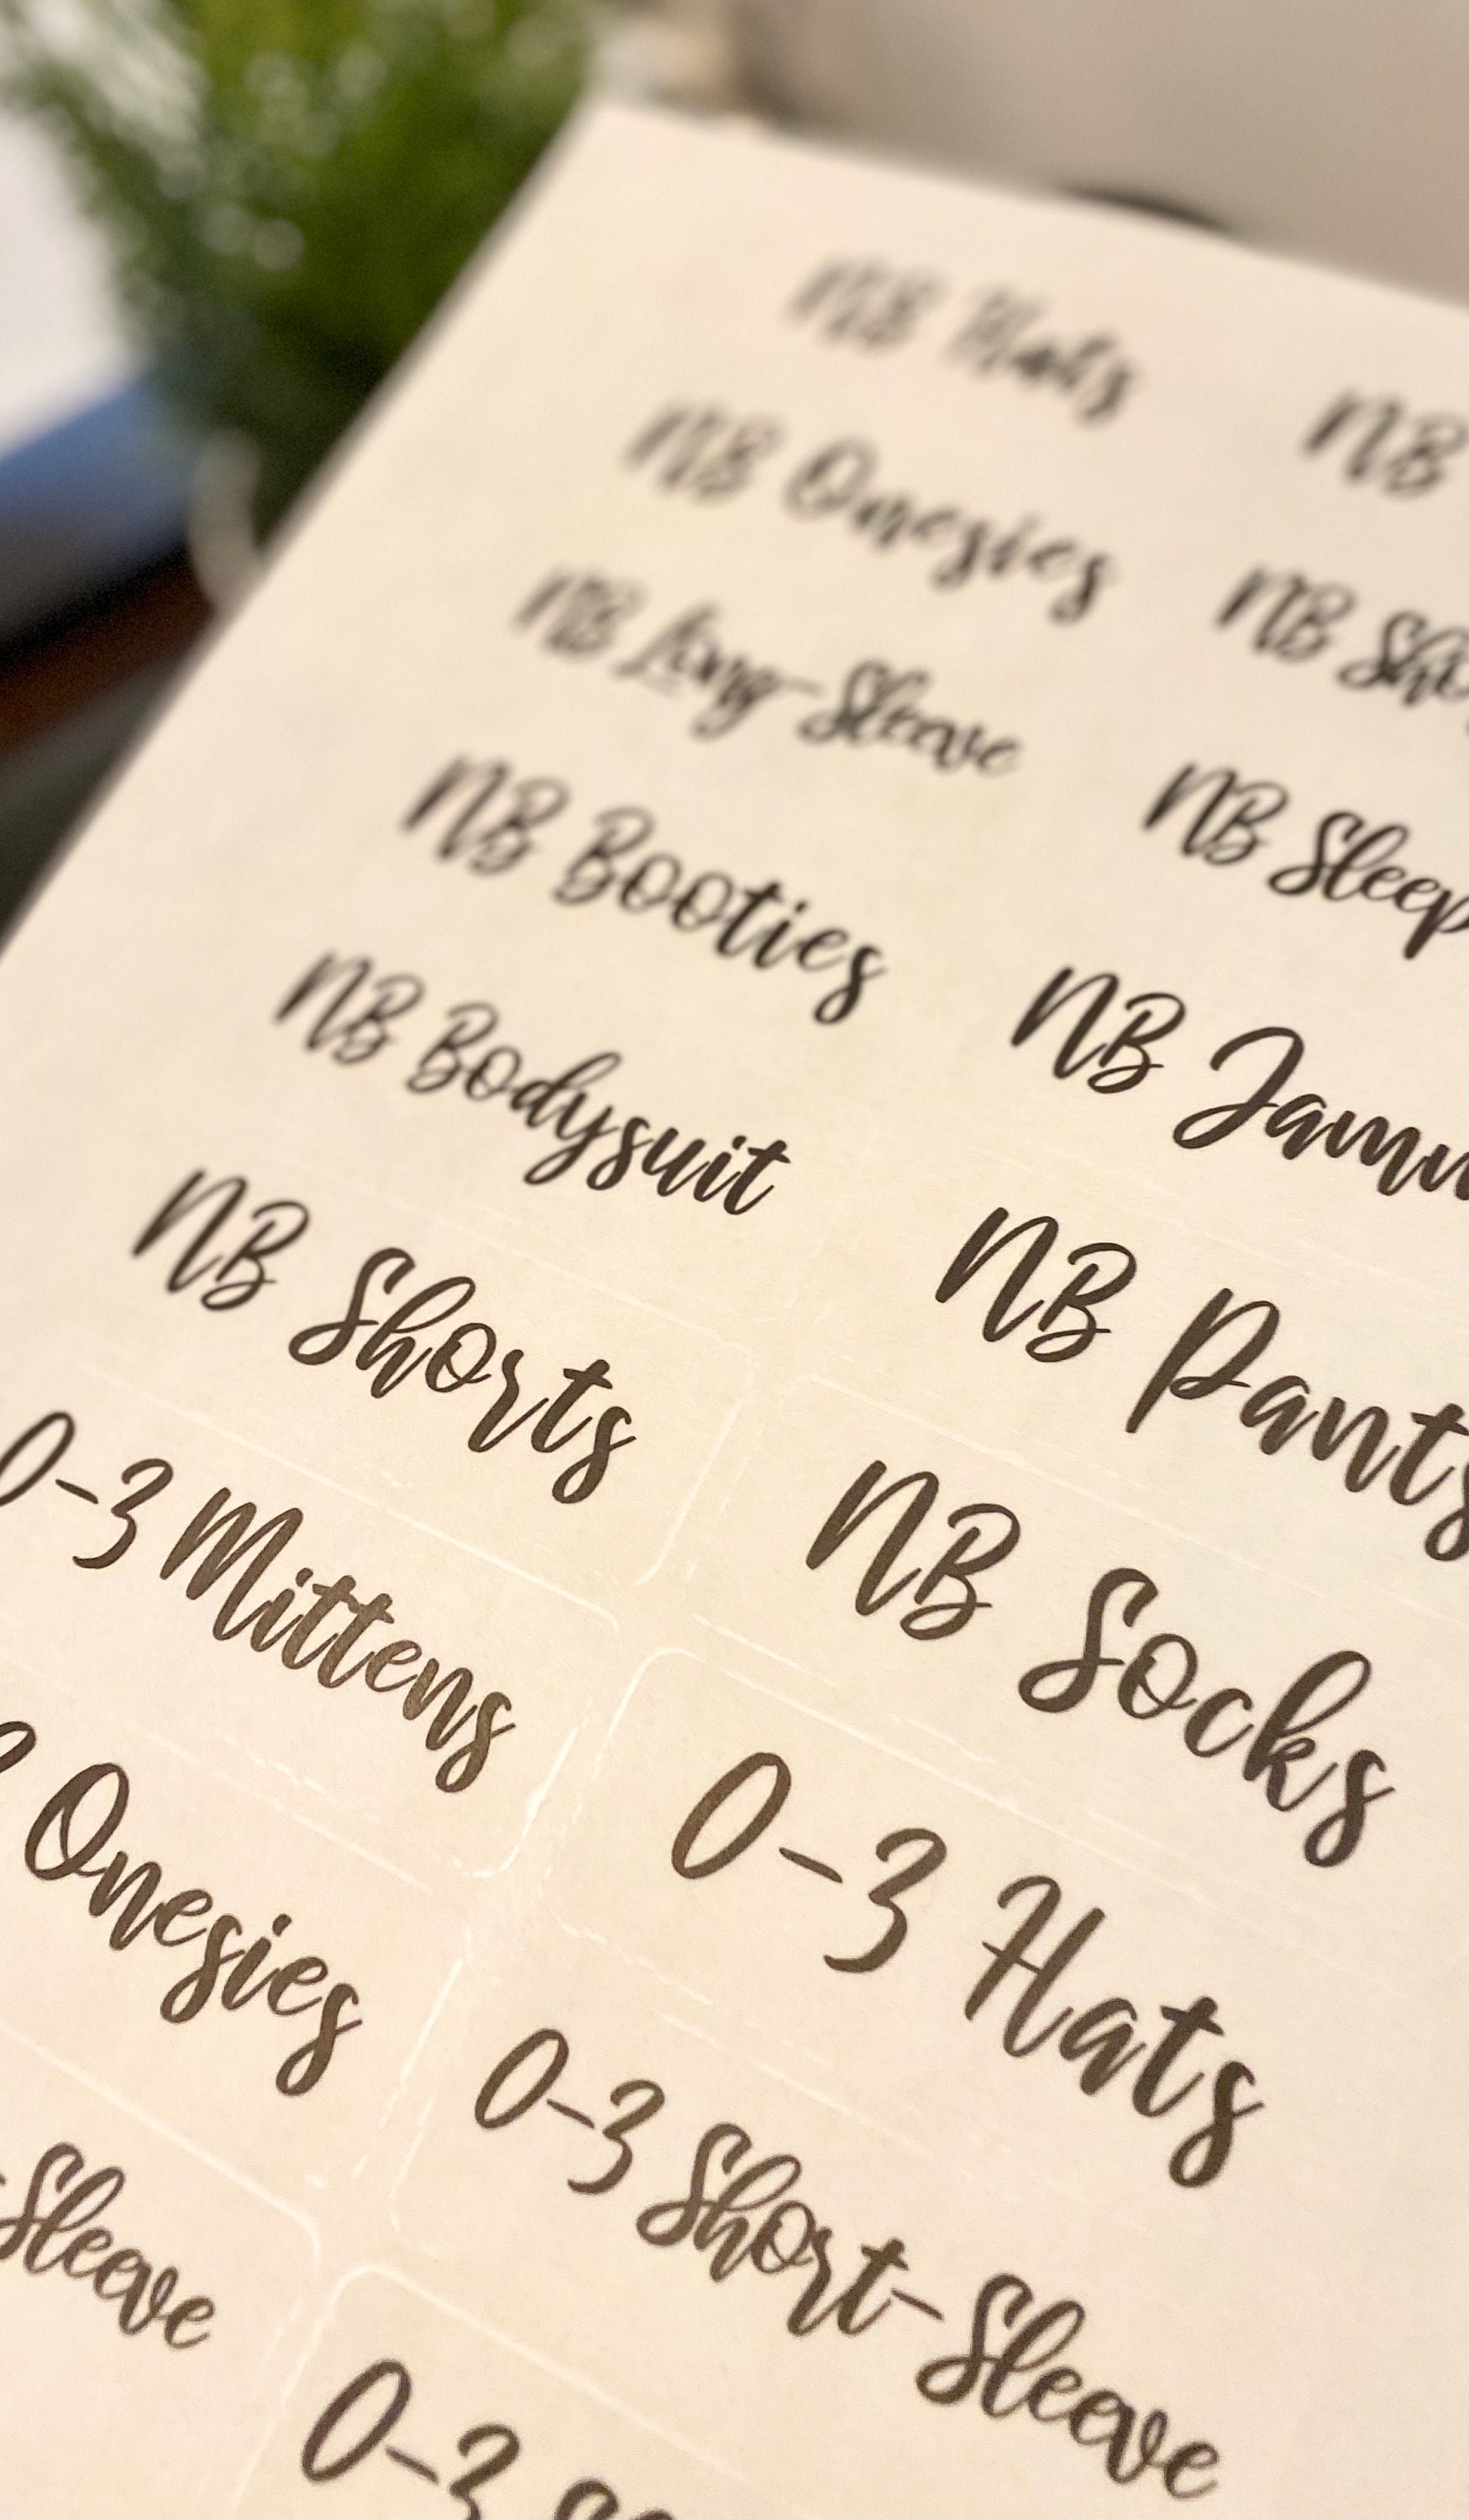 NB Hats
NB
NB Onesies
NB Sho
NB Long-Sleeve
NB Sleep
NB Booties
NB Jamm
NB Bodysuit
NB Pants
NB Shorts
NB Socks
0-3 Mittens
0-3 Hats
Onesies
0-3 Short-Sleeve
Sleeve
0-3